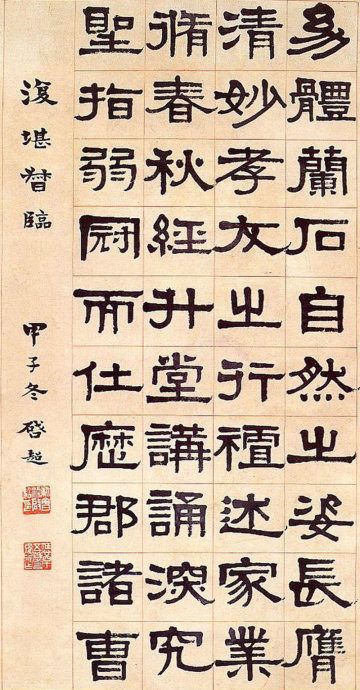 體蘭石自然之姿長膺
清妙孝友之行襢述家業
脩春秋經升堂講誦深究
聖指弱冠而仕歷郡諸曹
復堪督臨 甲子冬啓超